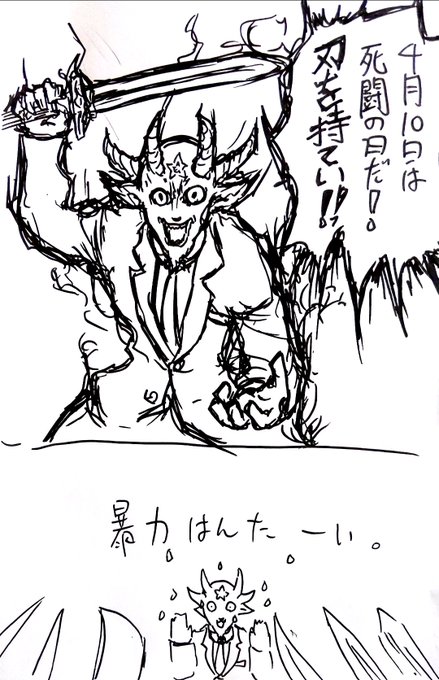 4月10日は
死闘の日だ！
刃を持てい!!
暴力はんたーい。